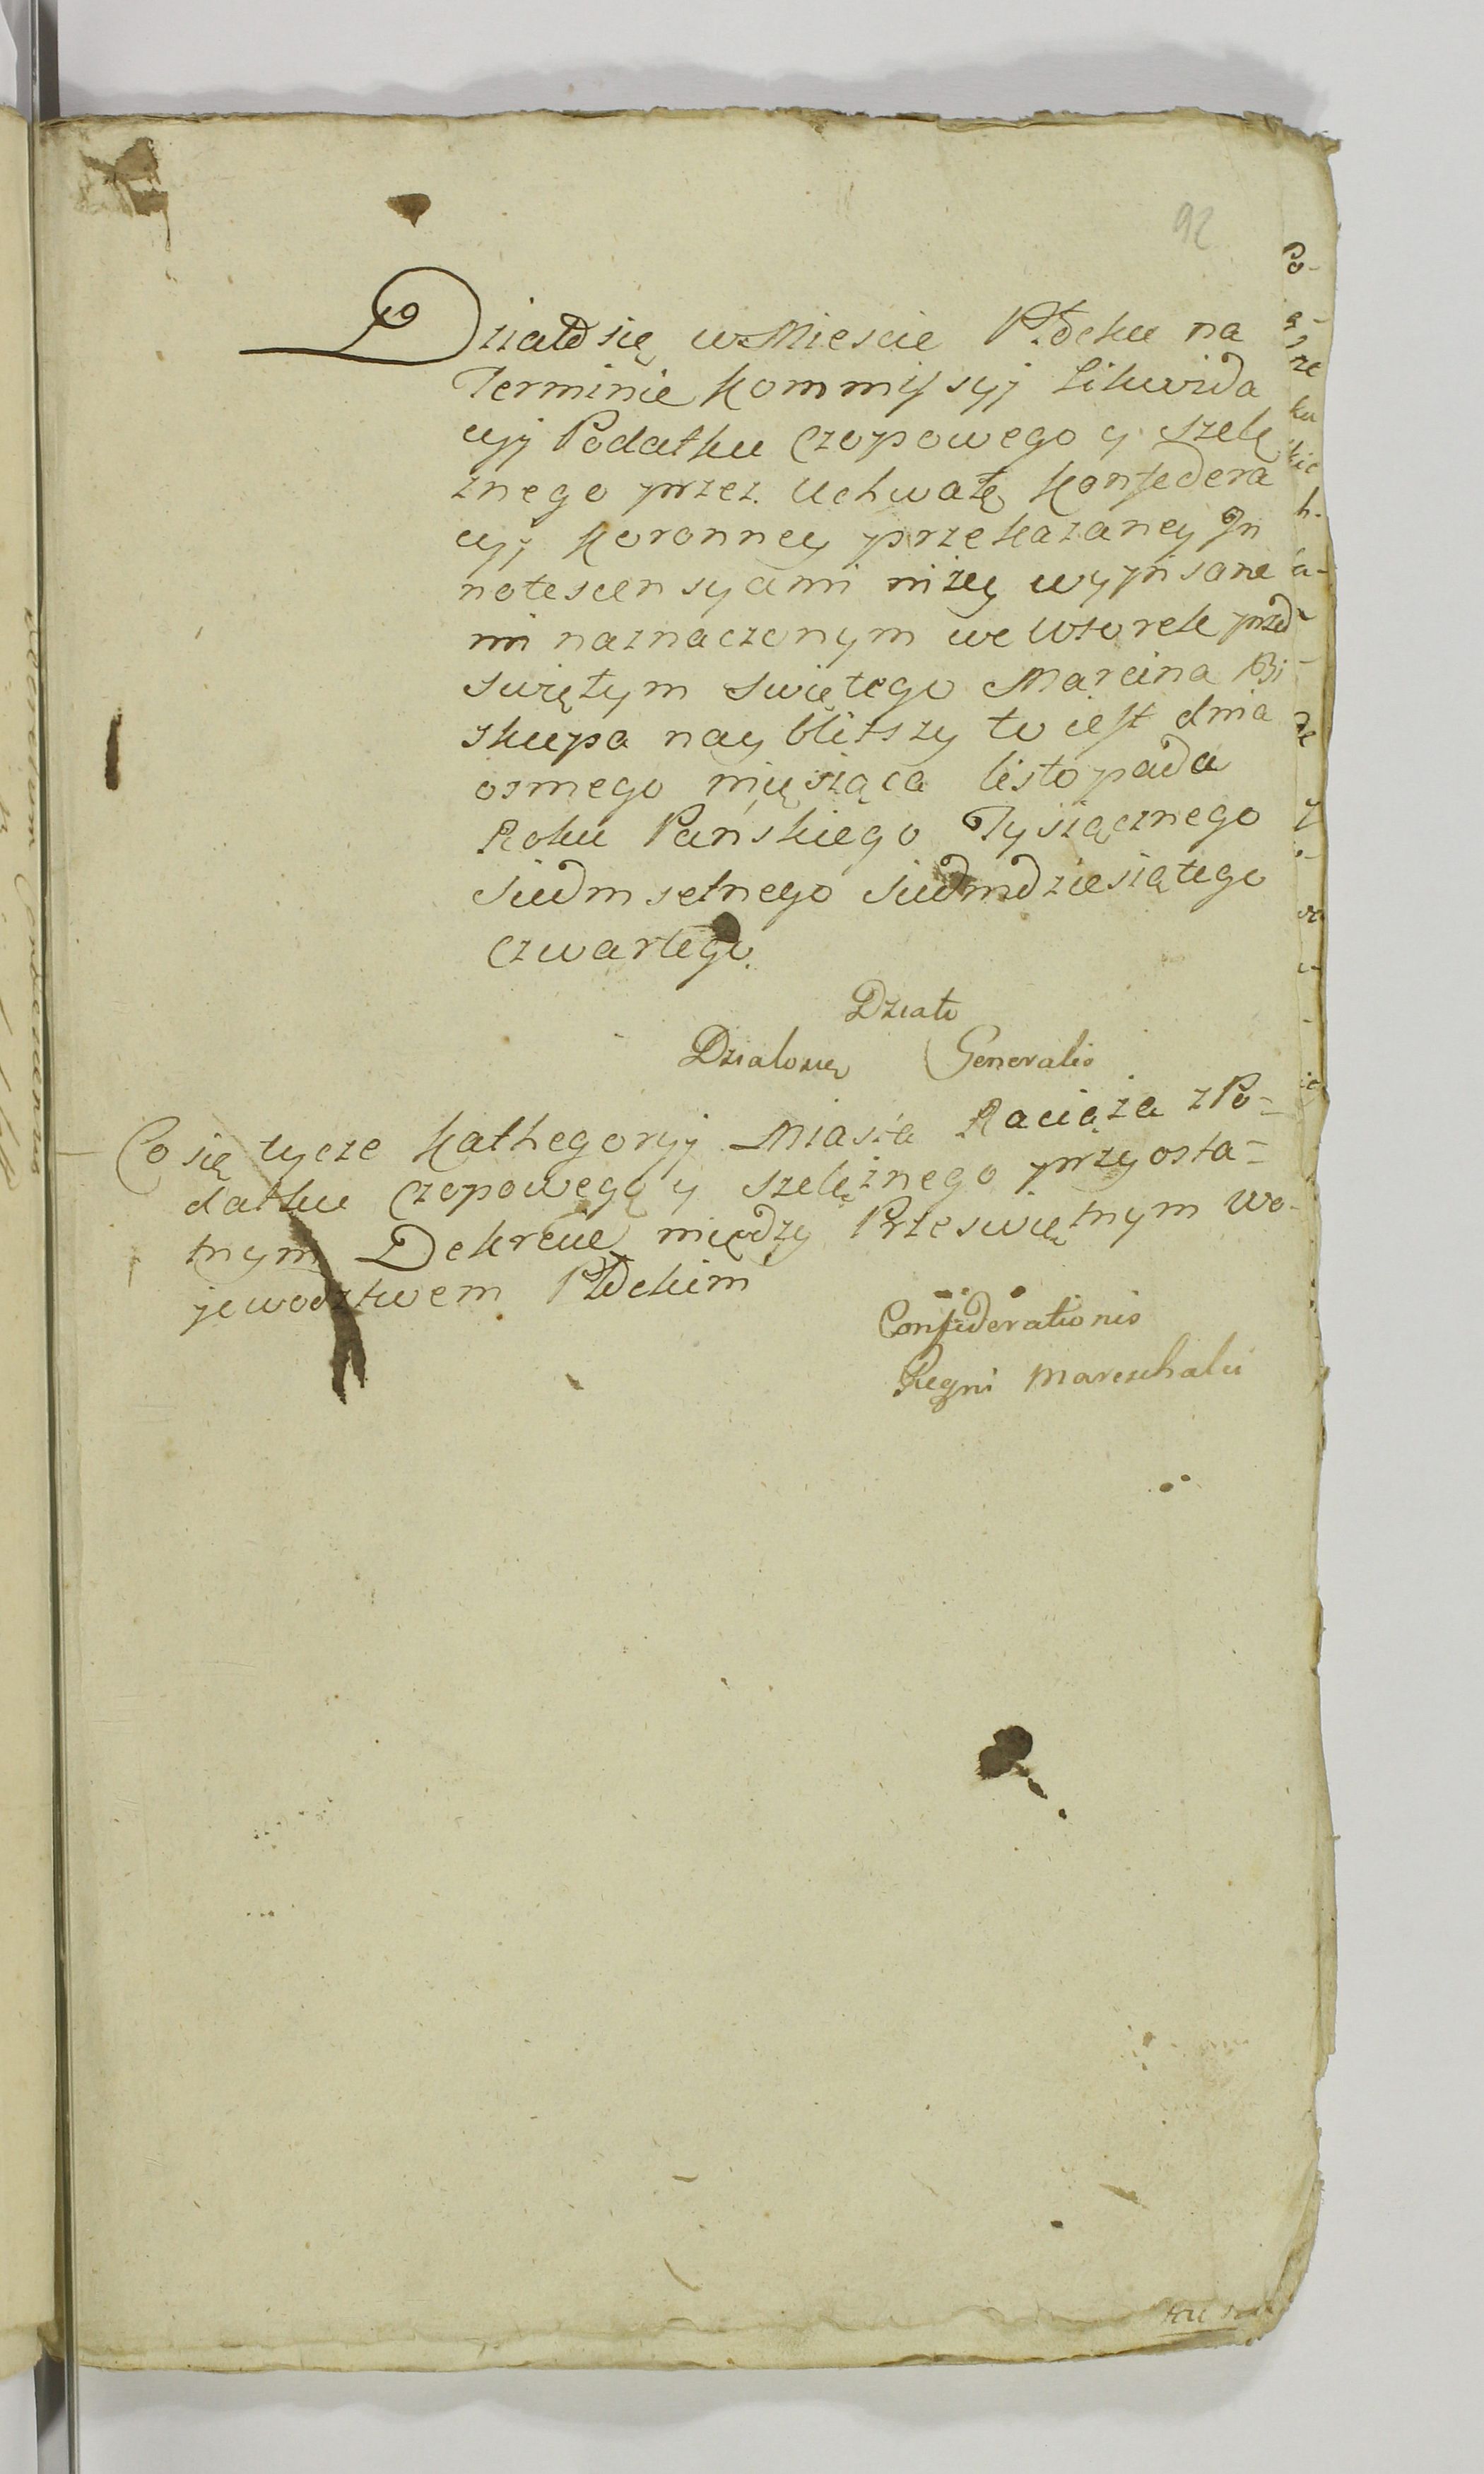 92
Działo się w Miescie Płocku na
Terminie Kommissyj Likwida
cyj Podatku Czopowego y szelę
znego przez Uchwałę Konfedera
cyj Koronney przekazaney In
notescensyami niżey wypisane
mi naznaczonym we Wtorek przed
swiętym Swiętego Marcina Bi
skupa nay blitszy to iest dnia
osmego miesiąca listopada
Roku Pańskiego Tysiącznego
siedmsetnego siedmdziesiątego
czwartego.
Działo
Działosię Generalis
Co się tycze Kathegoryj Miasta Raciąża z Po-
datku Czopowego y szelężnego przy osta-
tnym Dekrecie między Przeświętnym Wo-
jewodztwem Płockim
Confederationis
Regni Mareschalci